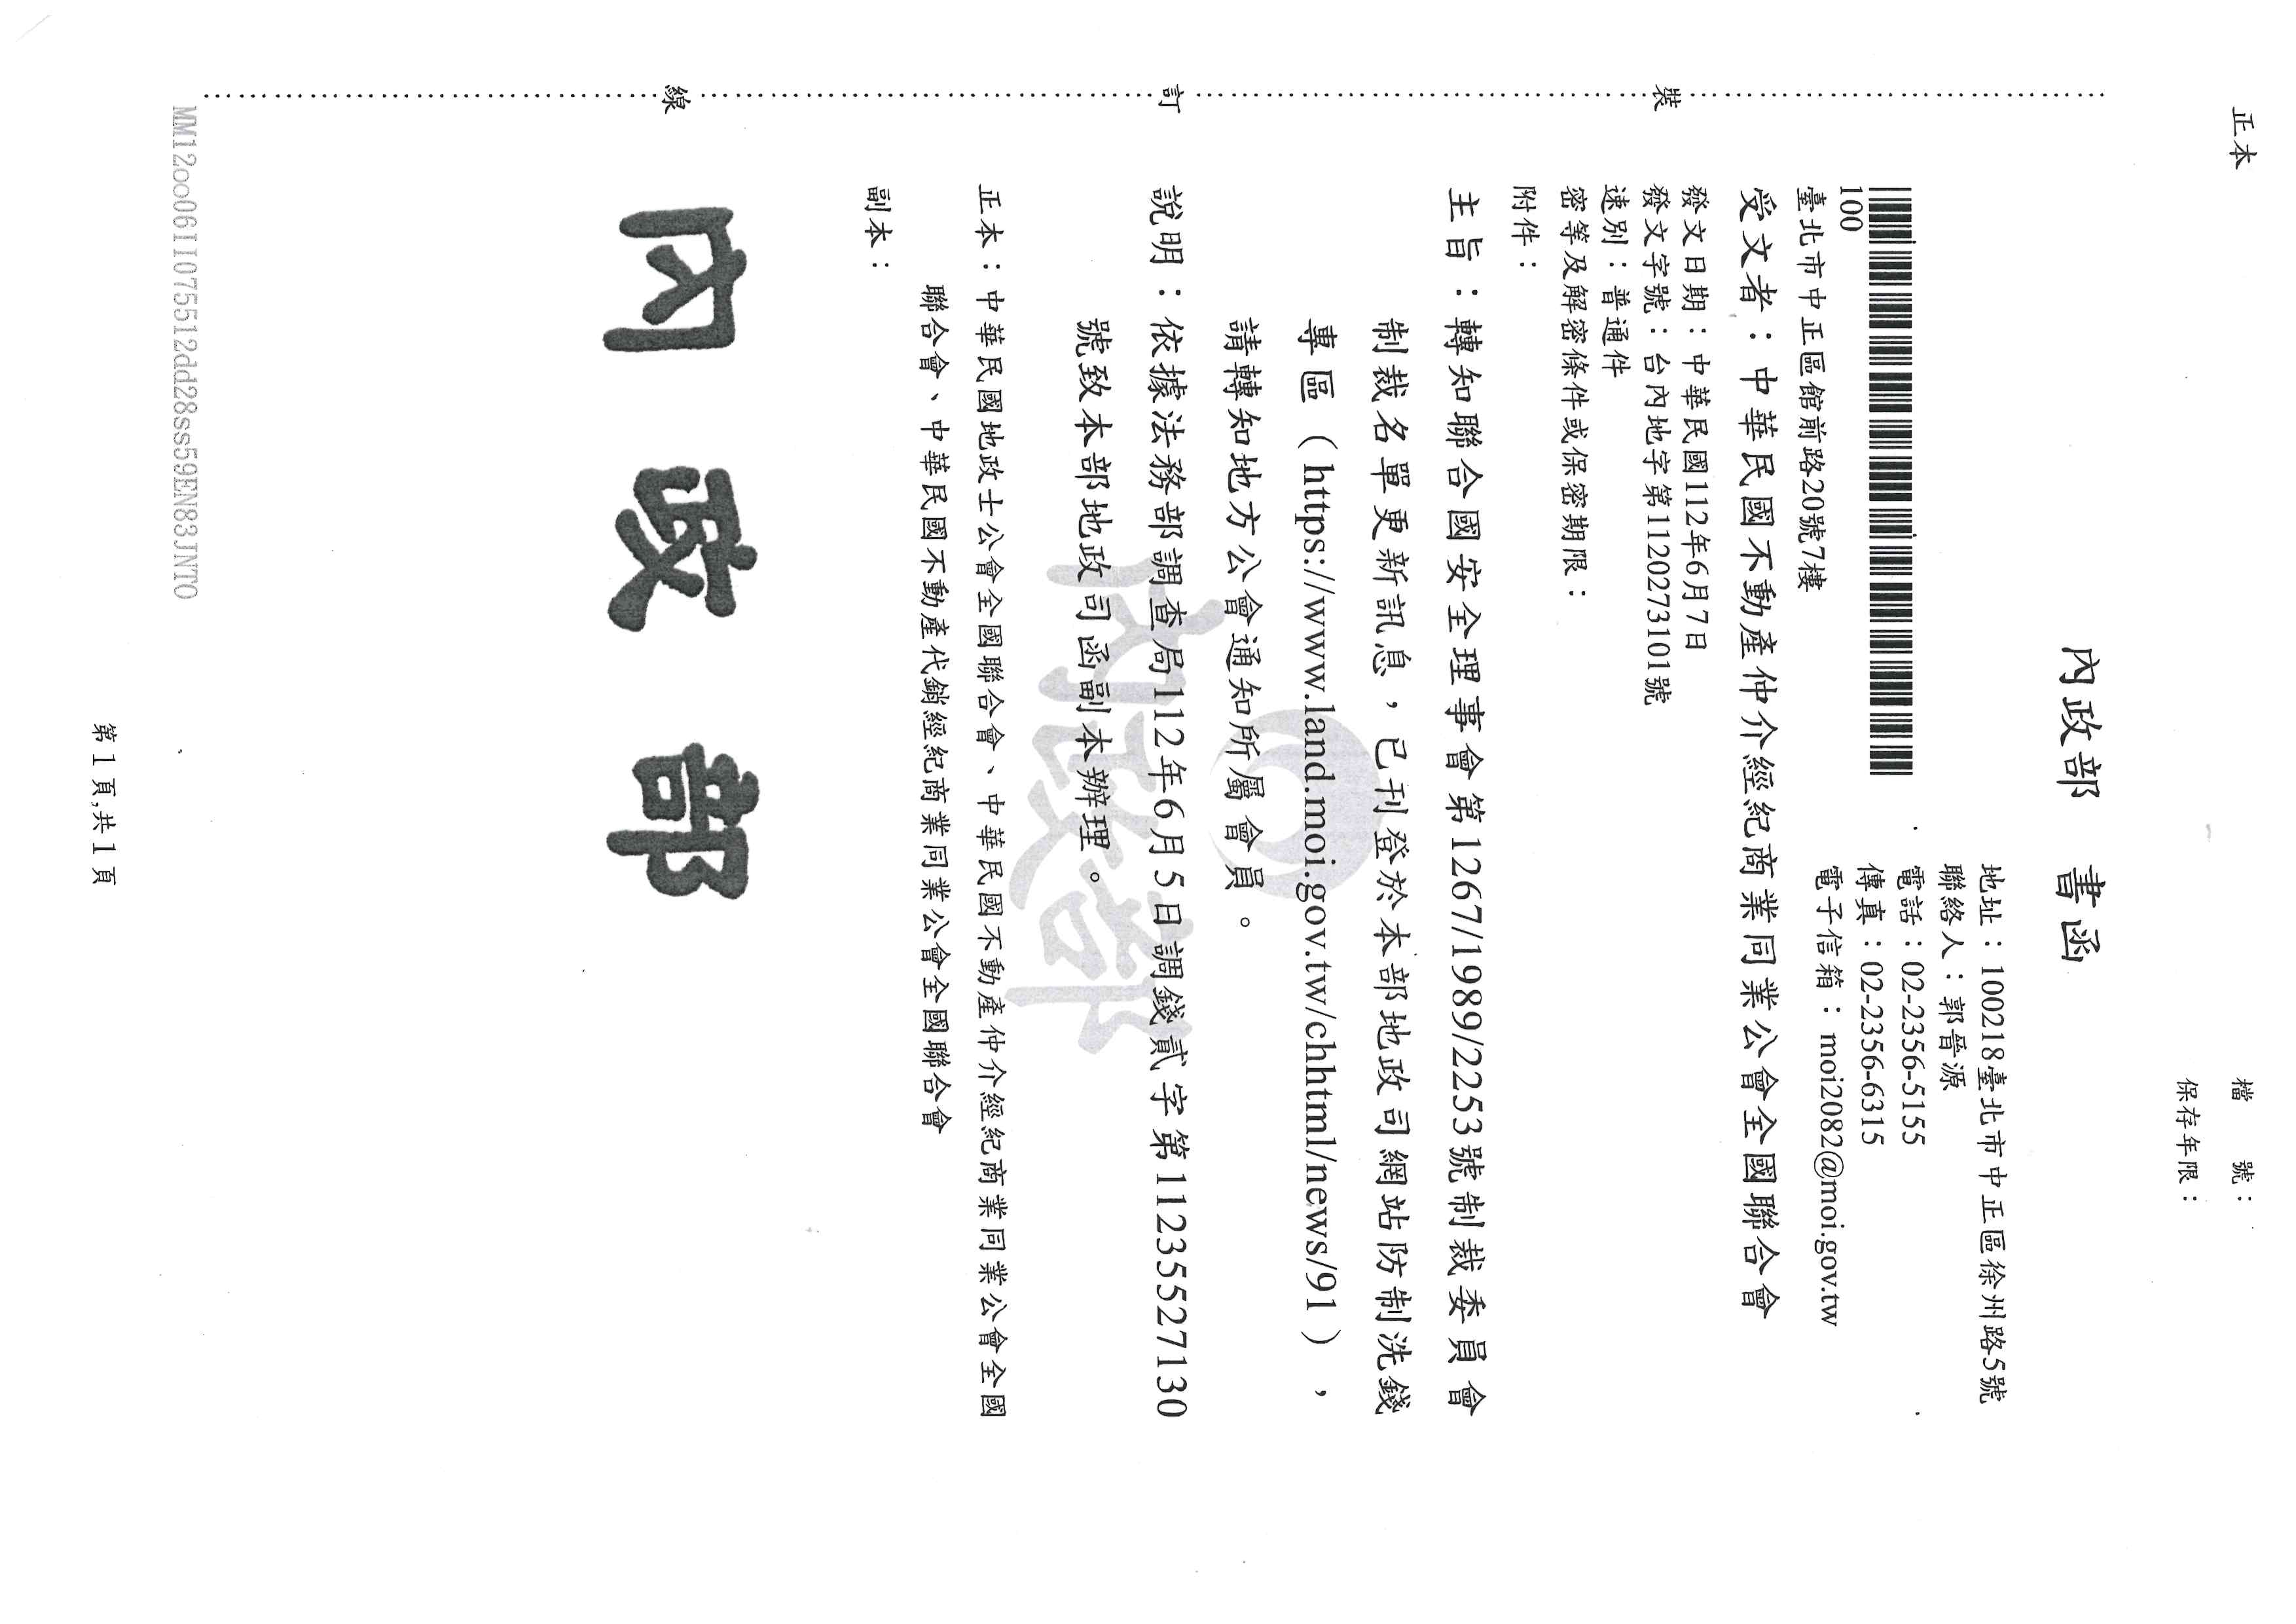 正本
檔　　號：
保存年限：
內政部　書函
地址：100218臺北市中正區徐州路5號
聯絡人：郭晉源
電話：02-2356-5155
傳真：02-2356-6315
電子信箱：moi2082@moi.gov.tw
100
臺北市中正區館前路20號7樓
受文者：中華民國不動產仲介經紀商業同業公會全國聯合會
發文日期：中華民國112年6月7日
發文字號：台內地字第1120273101號
速別：普通件
密等及解密條件或保密期限：
附件：
主旨：轉知聯合國安全理事會第1267/1989/2253號制裁委員會
制裁名單更新訊息，已刊登於本部地政司網站防制洗錢
專區（https://www.land.moi.gov.tw/chhtml/news/91），
請轉知地方公會通知所屬會員。
說明：依據法務部調查局112年6月5日調錢貳字第11235527130
號致本部地政司函副本辦理。
正本：中華民國地政士公會全國聯合會、中華民國不動產仲介經紀商業同業公會全國
聯合會、中華民國不動產代銷經紀商業同業公會全國聯合會
副本：
內政部
內政部
裝
訂
線
第1頁,共1頁
MM12oo06II075512dd28ss59EN83JNTO